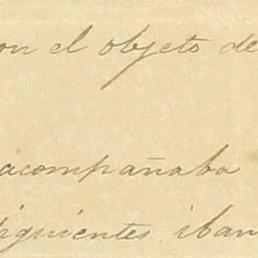 on el objeto de
acompañaba
siguientes iban